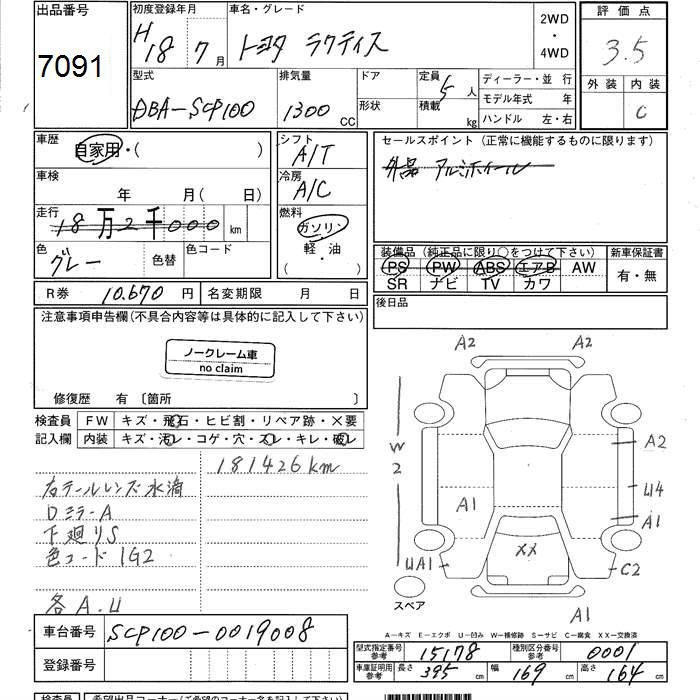 出品番号
7091
初度登録年月
H18 7月
車名・グレード
トヨタ ラクティス
2WD
・
4WD
評価点
3.5
外装 内装
C
型式
DBA-SCP100
排気量
1300 CC
ドア
形状
定員 5人
積載 kg
ディーラー・並 行
モデル年式 年
ハンドル 左・右
車歴
自家用・( )
車検
年 月( 日)
走行
18万2千000 km
色
グレー
色替
色コード
シフト
A/T
冷房
A/C
燃料
ガソリン
軽・油
( ・ )
R券 10.670 円
名変期限 月 日
セールスポイント(正常に機能するものに限ります)
外品 アルミホイール
装備品 (純正品に限り○をつけて下さい)
PS PW ABS エアB AW
SR ナビ TV カワ
新車保証書
有・無
後日品
注意事項申告欄(不具合内容等は具体的に記入して下さい)
ノークレーム車
no claim
修復歴 有〔箇所 〕
検査員
記入欄
FW キズ・飛石・ヒビ割・リペア跡・×要
内装 キズ・汚レ・コゲ・穴・スレ・キレ・破レ
181426km
右テールレンズ水滴
Dミラー A
下廻り S
色コード 1G2
各 A.U
A2 A2
W2
A2
U4
A1
A1
XX
UA1
C2
スペア
A1
A-キズ E-エクボ U-凹み W-補修跡 S-サビ C-腐食 XX-交換済
車台番号 SCP100-0019008
登録番号
型式指定番号
参考
15178
種別区分番号
参考
0001
車庫証明用
参考
長さ 395 cm 幅 169 cm 高さ 164 cm
検査員